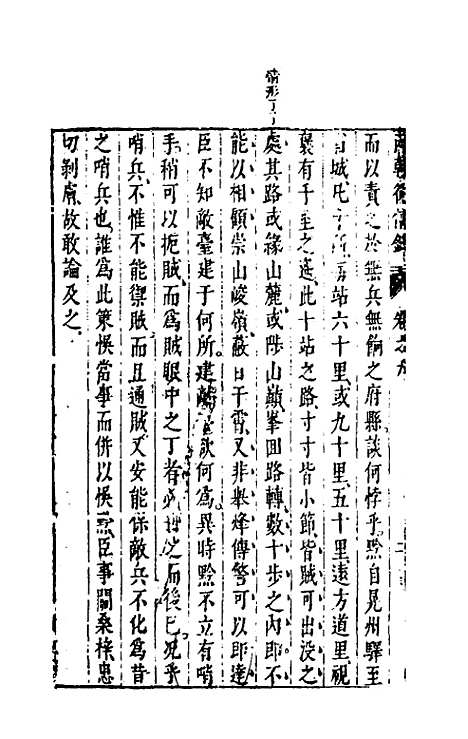 情形了了
卷之九
而以責之於無兵無餉之府縣談何悖乎黔自晃州驛至
省城凡 站六十里或九十里五十里遠方道里視
襄有千里之遙此十站之路寸寸皆小節皆賊可出沒之
處其路或緣山麓或陟山巔峯回路轉數十步之內即不
能以相顧崇山峻嶺蔽日干霄又非舉烽傳警可以即達
臣不知敵臺建于何所建敵臺欲何為異時黔不立有哨
手稍可以扼賊而為賊眼中之丁者必 之而後已况乎
哨兵不惟不能禦賊而且通賊又安能保敵兵不化為昔
之哨兵也誰為此策悞當事而併以悞黔臣事關桑梓忠
切剝膚故敢論及之